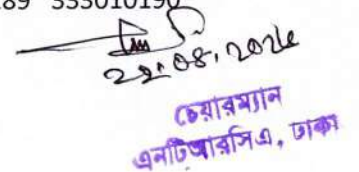 89 333010190
22.08.2024
চেয়ারম্যান
এনটিআরসিএ, ঢাকা